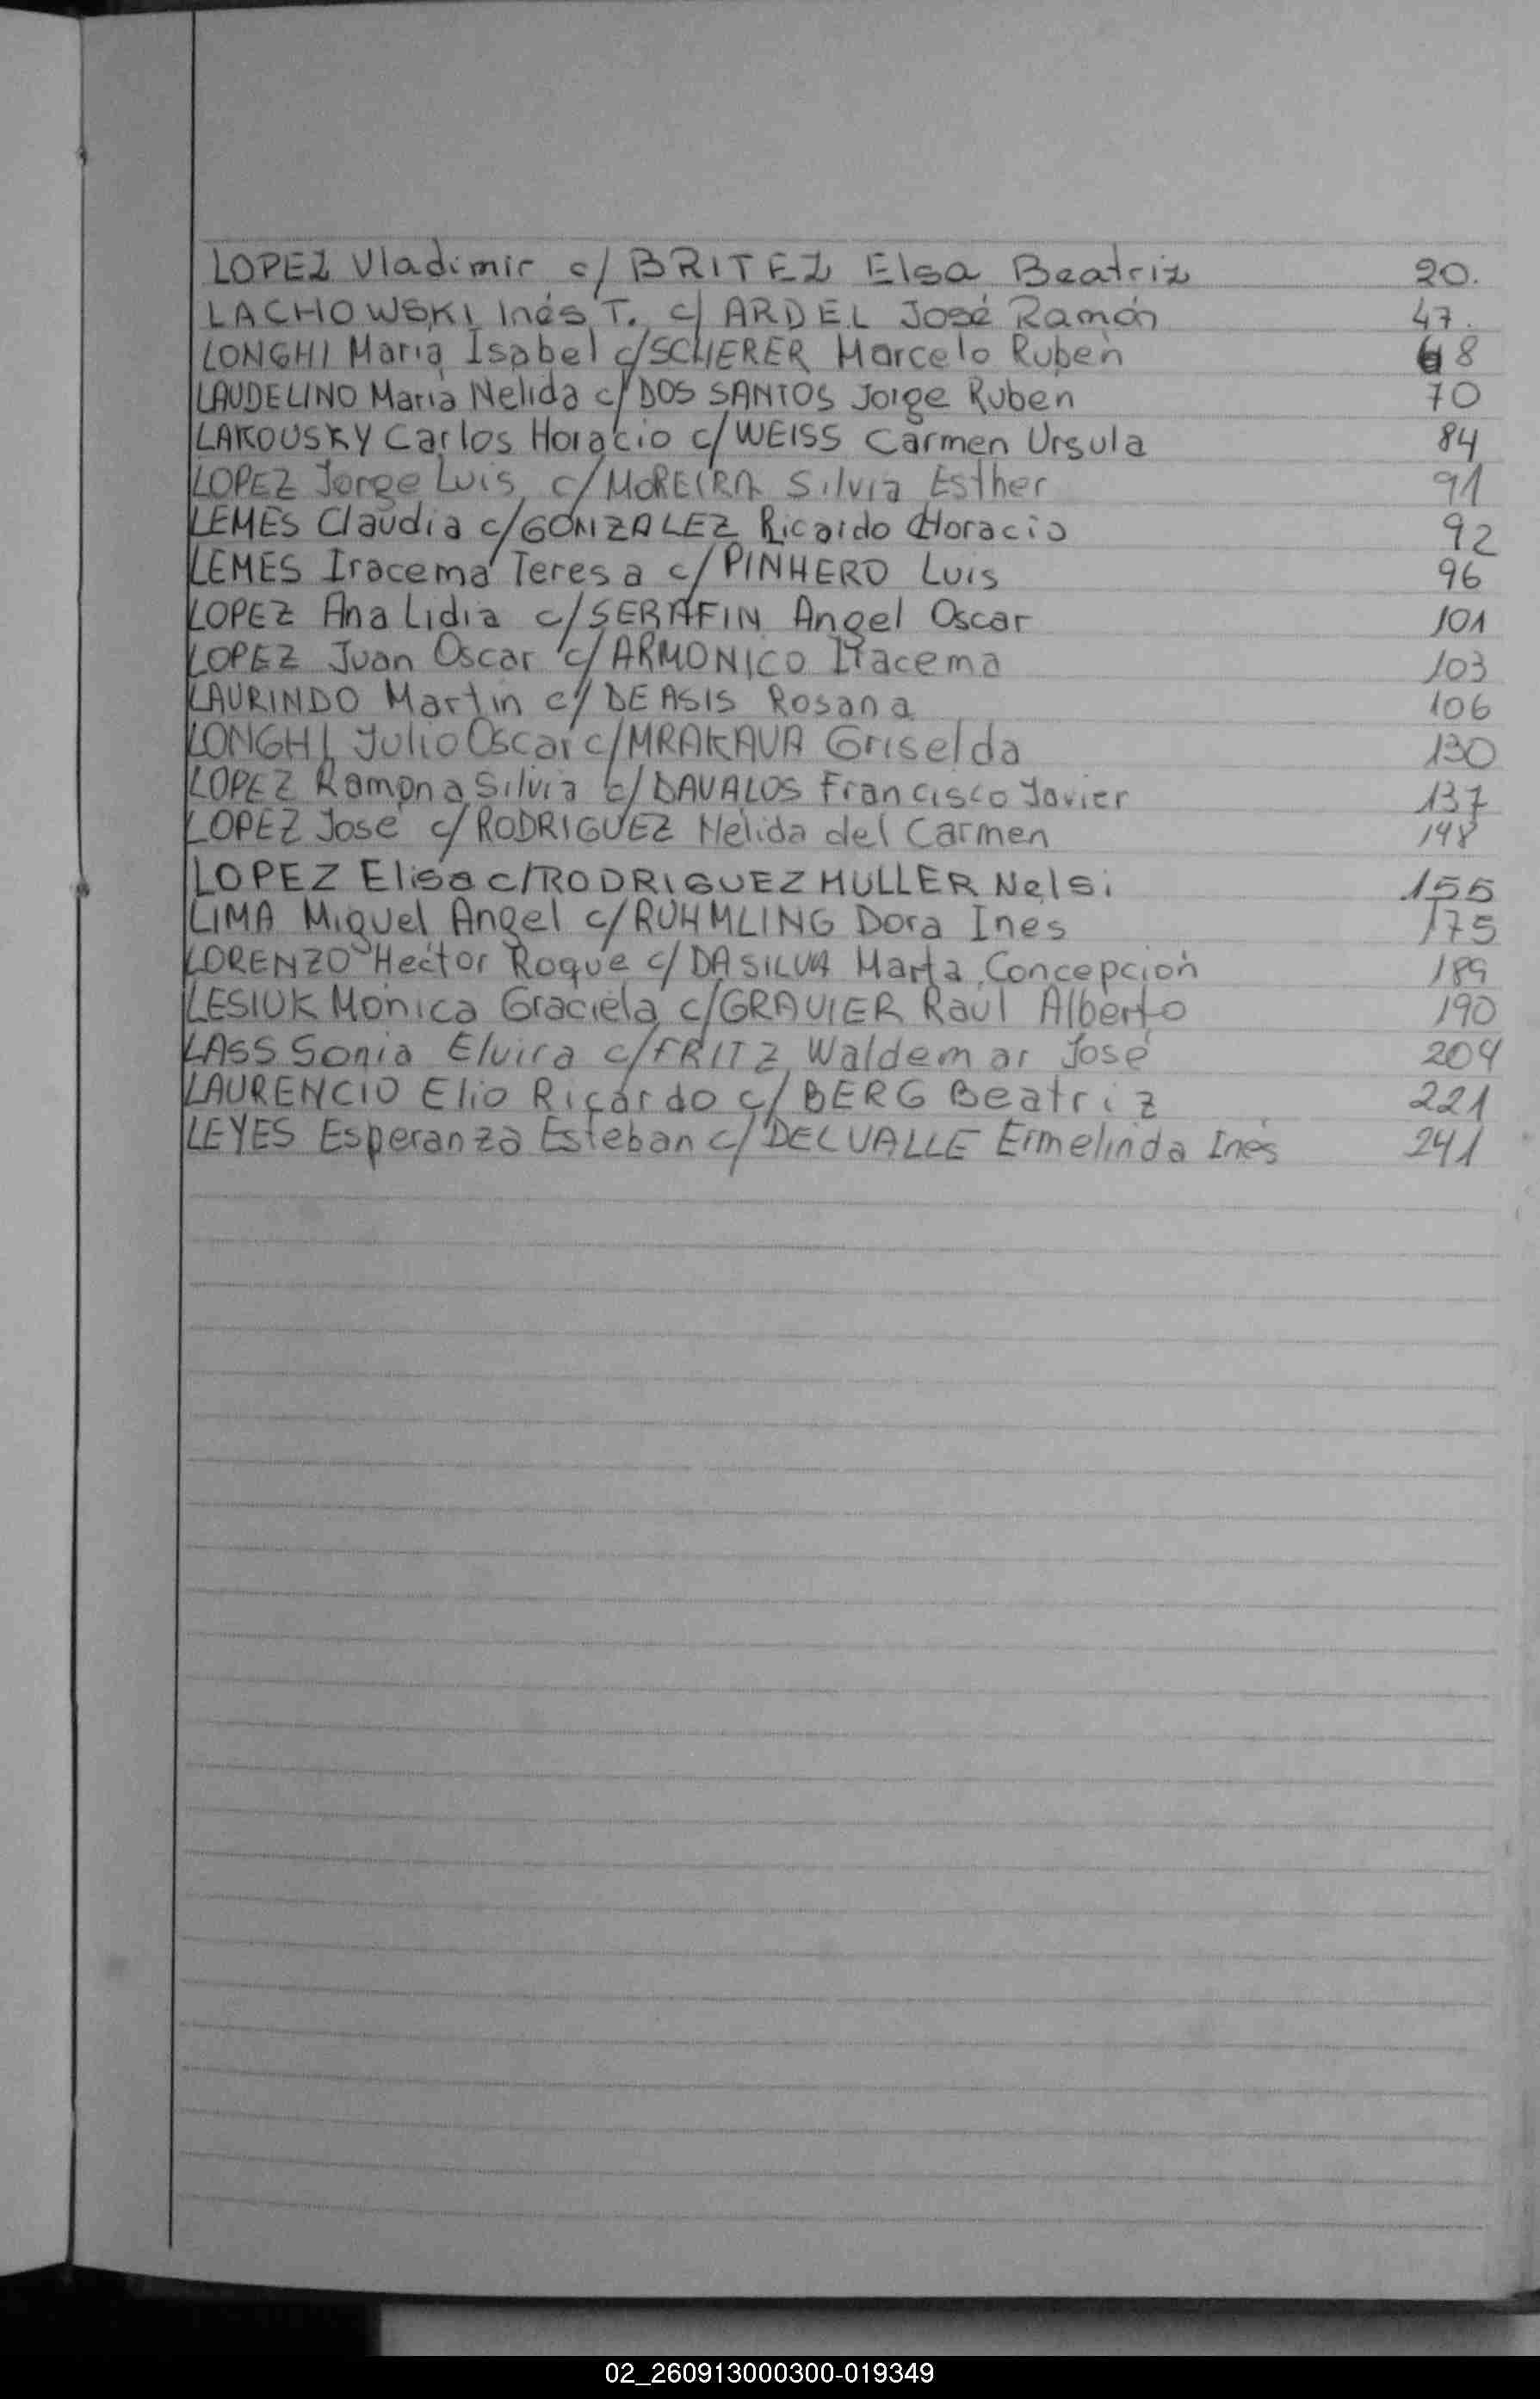 LOPEZ Vladimir c/ BRITEZ Elsa Beatriz 20.
LACHOWSKI Inés T. c/ ARDEL José Ramón 47.
LONGHI Maria Isabel c/SCHERER Marcelo Ruben 68
LAUDELINO Maria Nelida c/ DOS SANTOS Jorge Ruben 70
LAKOUSKY Carlos Horacio c/ WEISS Carmen Ursula 84
LOPEZ Jorge Luis c/ MOREIRA Silvia Esther 91
LEMES Claudia c/GONZALEZ Ricardo Horacio 92
LEMES Iracema Teresa c/ PINHERO Luis 96
LOPEZ Ana Lidia c/ SERAFIN Angel Oscar 101
LOPEZ Juan Oscar c/ ARMONICO Itacema 103
LAURINDO Martin c/ DE ASIS Rosana 106
LONGHI Julio Oscar c/MRAKAVA Griselda 130
LOPEZ Ramona Silvia c/ DAVALOS Francisco Javier 137
LOPEZ José c/ RODRIGUEZ Nelida del Carmen 148
LOPEZ Elisa c/RODRIGUEZ MULLER Nelsi 155
LIMA Miguel Angel c/ RUHMLING Dora Ines 175
LORENZO Hector Roque c/ DA SILVA Marta Concepción 189
LESIUK Mónica Graciela c/GRAVIER Raul Alberto 190
LASS Sonia Elvira c/FRITZ Waldemar José 204
LAURENCIO Elio Ricardo c/ BERG Beatriz 221
LEYES Esperanza Esteban c/ DEL VALLE Ermelinda Inés 241
02_260913000300-019349